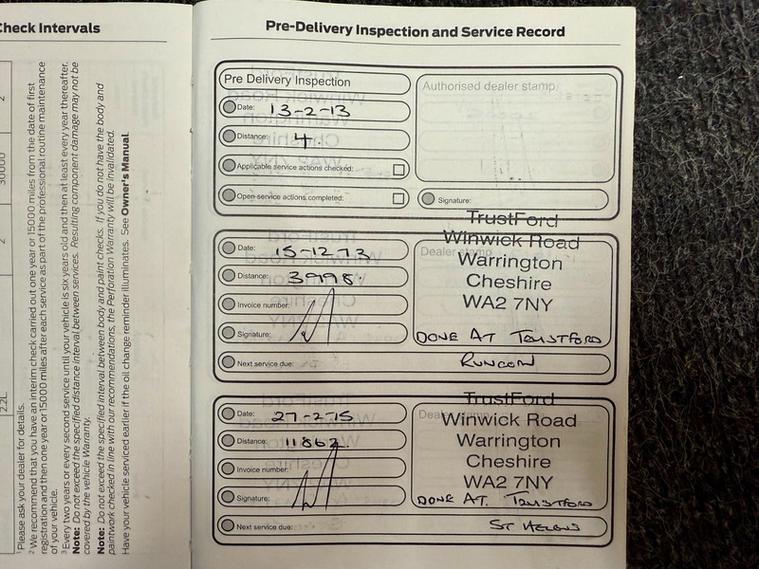 Check Intervals
2
30000
2
2.2L
1 Please ask your dealer for details.
2 We recommend that you have an interim check carried out one year or 15000 miles from the date of first
registration and then one year or 15000 miles after each service as part of the professional routine maintenance
of your vehicle.
3 Every two years or every second service until your vehicle is six years old and then at least every year thereafter.
Note: Do not exceed the specified distance interval between services. Resulting component damage may not be
covered by the vehicle Warranty.
Note: Do not exceed the specified interval between body and paint checks. If you do not have the body and
paintwork checked in line with our recommendations, the Perforation Warranty will be invalidated.
Have your vehicle serviced earlier if the oil change reminder illuminates. See Owner's Manual.
Pre-Delivery Inspection and Service Record
Pre Delivery Inspection
Date: 13-2-13
Distance: 4.
Applicable service actions checked:
Open service actions completed:
Authorised dealer stamp
Signature:
Date: 15-1273
Distance: 3998
Invoice number:
Signature:
Next service due:
TrustFord
Winwick Road
Dealer stamp
Warrington
Cheshire
WA2 7NY
DONE AT TRUSTFORD
RUNCORN
Date: 27-2-15
Distance: 11862
Invoice number:
Signature:
Next service due:
TrustFord
Dealer stamp
Winwick Road
Warrington
Cheshire
WA2 7NY
DONE AT. TRUSTFORD
ST HELENS